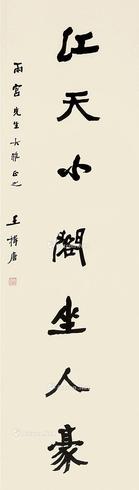 江天小閣坐人豪
雨宮先生大雅正之
王揖唐